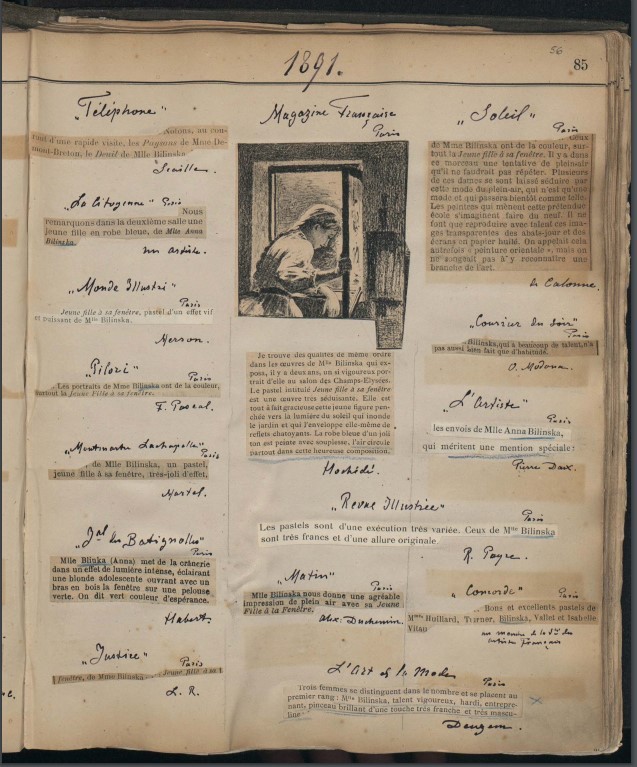 1891.
56
85
"Téléphone"
Notons, au cou-
rant d'une rapide visite, les Paysans de Mme De-
mont-Breton, le Deuil de Mlle Bilinska
"La Citoyenne" Paris
Nous
remarquons dans la deuxième salle une
jeune fille en robe bleue, de Mlle Anna
Bilinska
un artiste.
"Monde Illustré"
Paris
Jeune fille à sa fenêtre, pastel d'un effet vif
et puissant de Mlle Bilinska.
"Pilori"
Paris
Les portraits de Mme Bilinska ont de la couleur,
surtout la Jeune Fille à sa fenêtre.
F. Pascal.
"Montmartre Lachapelle"
Paris
de Mlle Bilinska, un pastel,
jeune fille à sa fenêtre, très-joli effet,
Martel.
"Jal des Batignolles"
Paris
Mlle Blinka (Anna) met de la crânerie
dans un effet de lumière intense, éclairant
une blonde adolescente ouvrant avec un
bras en bois la fenêtre sur une pelouse
verte. On dit vert couleur d'espérance.
Habert.
"Justice"
Paris
fenêtre, de Mme Bilinska
L. R.
Magazine Française
Paris
Je trouve des qualités de même ordre
dans les œuvres de Mlle Bilinska qui ex-
posa, il y a deux ans, un si vigoureux por-
trait d'elle au salon des Champs-Elysées.
Le pastel intitulé Jeune fille à sa fenêtre
est une œuvre très séduisante. Elle est
tout à fait gracieuse cette jeune figure pen-
chée vers la lumière du soleil qui inonde
le jardin et qui l'enveloppe elle-même de
reflets chatoyants. La robe bleue d'un joli
ton est peinte avec souplesse, l'air circule
partout dans cette heureuse composition.
"Revue Illustrée"
Paris
Les pastels sont d'une exécution très variée. Ceux de Mlle Bilinska
sont très francs et d'une allure originale.
"Matin"
Paris
Mlle Bilinska nous donne une agréable
impression de plein air avec sa Jeune
Fille à la Fenêtre.
L'Art et la Mode
Paris
Trois femmes se distinguent dans le nombre et se placent au
premier rang: Mlle Bilinska, talent vigoureux, hardi, entrepre-
nant, pinceau brillant d'une touche très franche et très mascu-
line
"Soleil"
Paris
Ceux
de Mme Bilinska ont de la couleur, sur-
tout la Jeune fille à sa fenêtre. Il y a dans
ce morceau une tentative de pleinair
qu'il ne faudrait pas répéter. Plusieurs
de ces dames se sont laissé séduire par
cette mode du plein-air, qui n'est qu'une
mode et qui passera bientôt comme telle.
Les peintres qui mènent cette prétendue
école s'imaginent faire du neuf. Il ne
font que reproduire avec talent ces ima-
ges transparentes des abats-jour et des
écrans en papier huilé. On appelait cela
autrefois « peinture orientale », mais on
ne songeait pas à y reconnaître une
branche de l'art.
de Calonne.
"Courrier du soir"
Paris
Bilinska, qui a beaucoup de talent, n'a
pas aussi bien fait que d'habitude.
"L'Artiste"
Paris
les envois de Mlle Anna Bilinska,
qui méritent une mention spéciale:
Pierre Dax.
"Concorde"
Paris
Bons et excellents pastels de
Mmes Holliard, Turner, Bilinska, Vallet et Isabelle
Vitau
un membre de la Sté des
artistes français